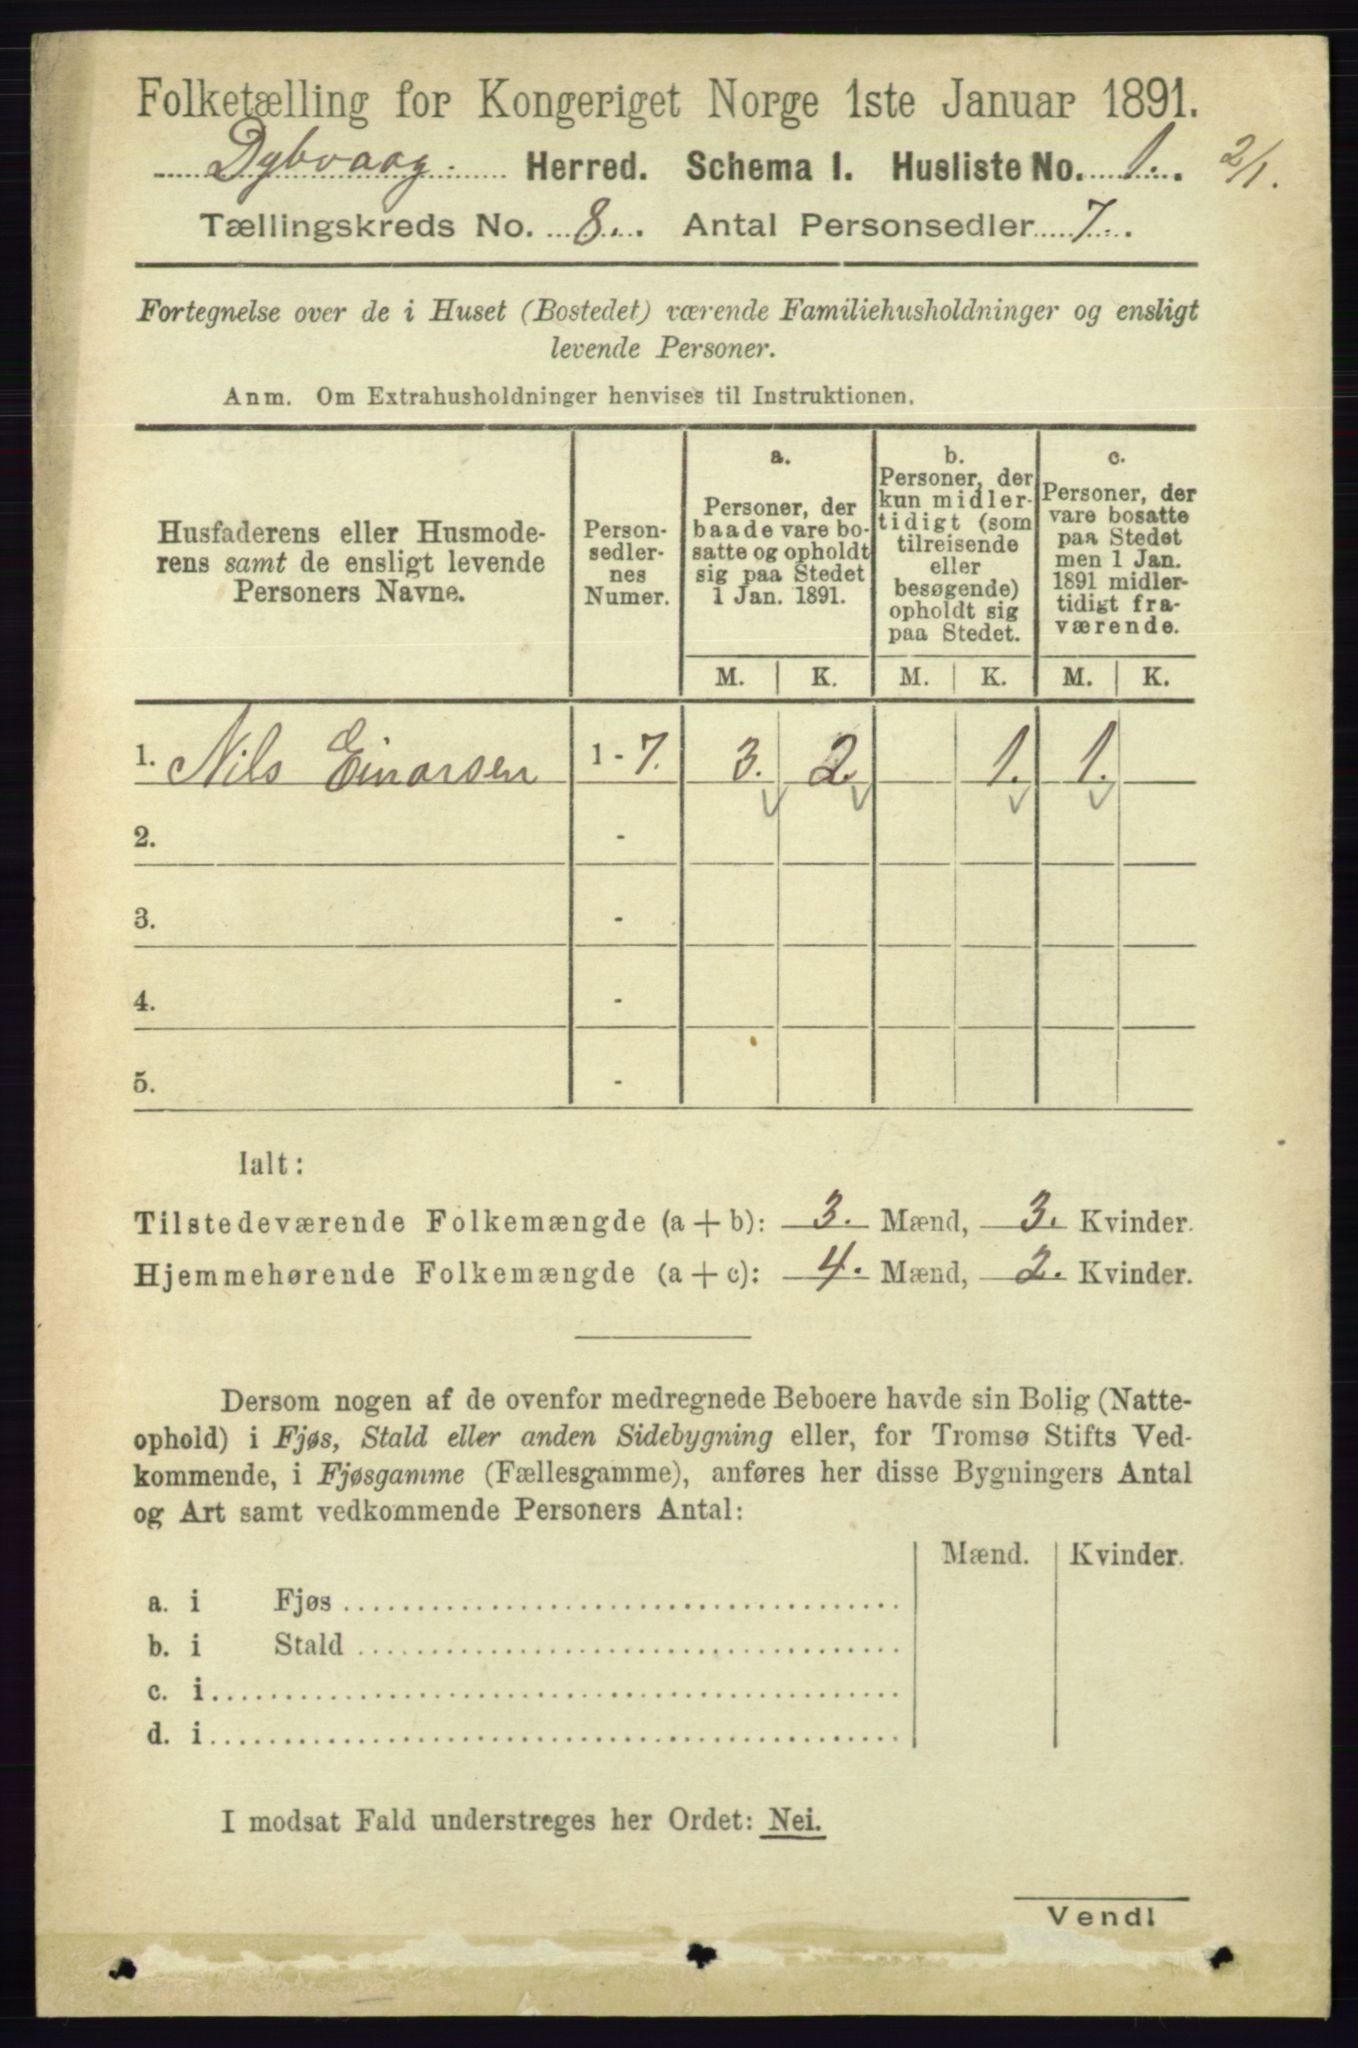 Folketælling for Kongeriget Norge 1ste Januar 1891.
Dybvaag. Herred. Schema I. Husliste No. 1. 2/1.
Tællingskreds No. 8. Antal Personsedler 7.
Fortegnelse over de i Huset (Bostedet) værende Familiehusholdninger og ensligt
levende Personer.
Anm. Om Extrahusholdninger henvises til Instruktionen.
Husfaderens eller Husmode-
rens samt de ensligt levende
Personers Navne.
Person-
sedler-
nes
Numer.
a.
Personer, der
baade vare bo-
satte og opholdt
sig paa Stedet
1 Jan. 1891.
b.
Personer, der
kun midler-
tidigt (som
tilreisende
eller
besøgende)
opholdt sig
paa Stedet.
c.
Personer, der
vare bosatte
paa Stedet
men 1 Jan.
1891 midler-
tidigt fra-
værende.
M. K. M. K. M. K.
1. Nils Einarsen 1 - 7. 3. 2. 1. 1.
2. -
3. -
4. -
5. -
Ialt:
Tilstedeværende Folkemængde (a + b): 3. Mænd, 3. Kvinder.
Hjemmehørende Folkemængde (a + c): 4. Mænd, 2. Kvinder.
Dersom nogen af de ovenfor medregnede Beboere havde sin Bolig (Natte-
ophold) i Fjøs, Stald eller anden Sidebygning eller, for Tromsø Stifts Ved-
kommende, i Fjøsgamme (Fællesgamme), anføres her disse Bygningers Antal
og Art samt vedkommende Personers Antal:
Mænd. Kvinder.
a. i Fjøs
b. i Stald
c. i
d. i
I modsat Fald understreges her Ordet: Nei.
Vend!